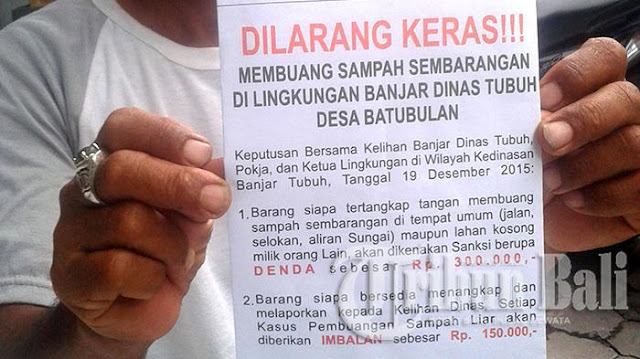 DILARANG KERAS!!!
MEMBUANG SAMPAH SEMBARANGAN
DI LINGKUNGAN BANJAR DINAS TUBUH
DESA BATUBULAN
Keputusan Bersama Kelihan Banjar Dinas Tubuh,
Pokja, dan Ketua Lingkungan di Wilayah Kedinasan
Banjar Tubuh, Tanggal 19 Desember 2015:
1.Barang siapa tertangkap tangan membuang
sampah sembarangan di tempat umum (jalan,
selokan, aliran Sungai) maupun lahan kosong
milik orang Lain, akan dikenakan Sanksi berupa
DENDA sebesar Rp. 300.000,-
2.Barang siapa bersedia menangkap dan
melaporkan kepada Kelihan Dinas, Setiap
Kasus Pembuangan Sampah Liar akan
diberikan IMBALAN sebesar Rp. 150.000,-
Tribun Bali